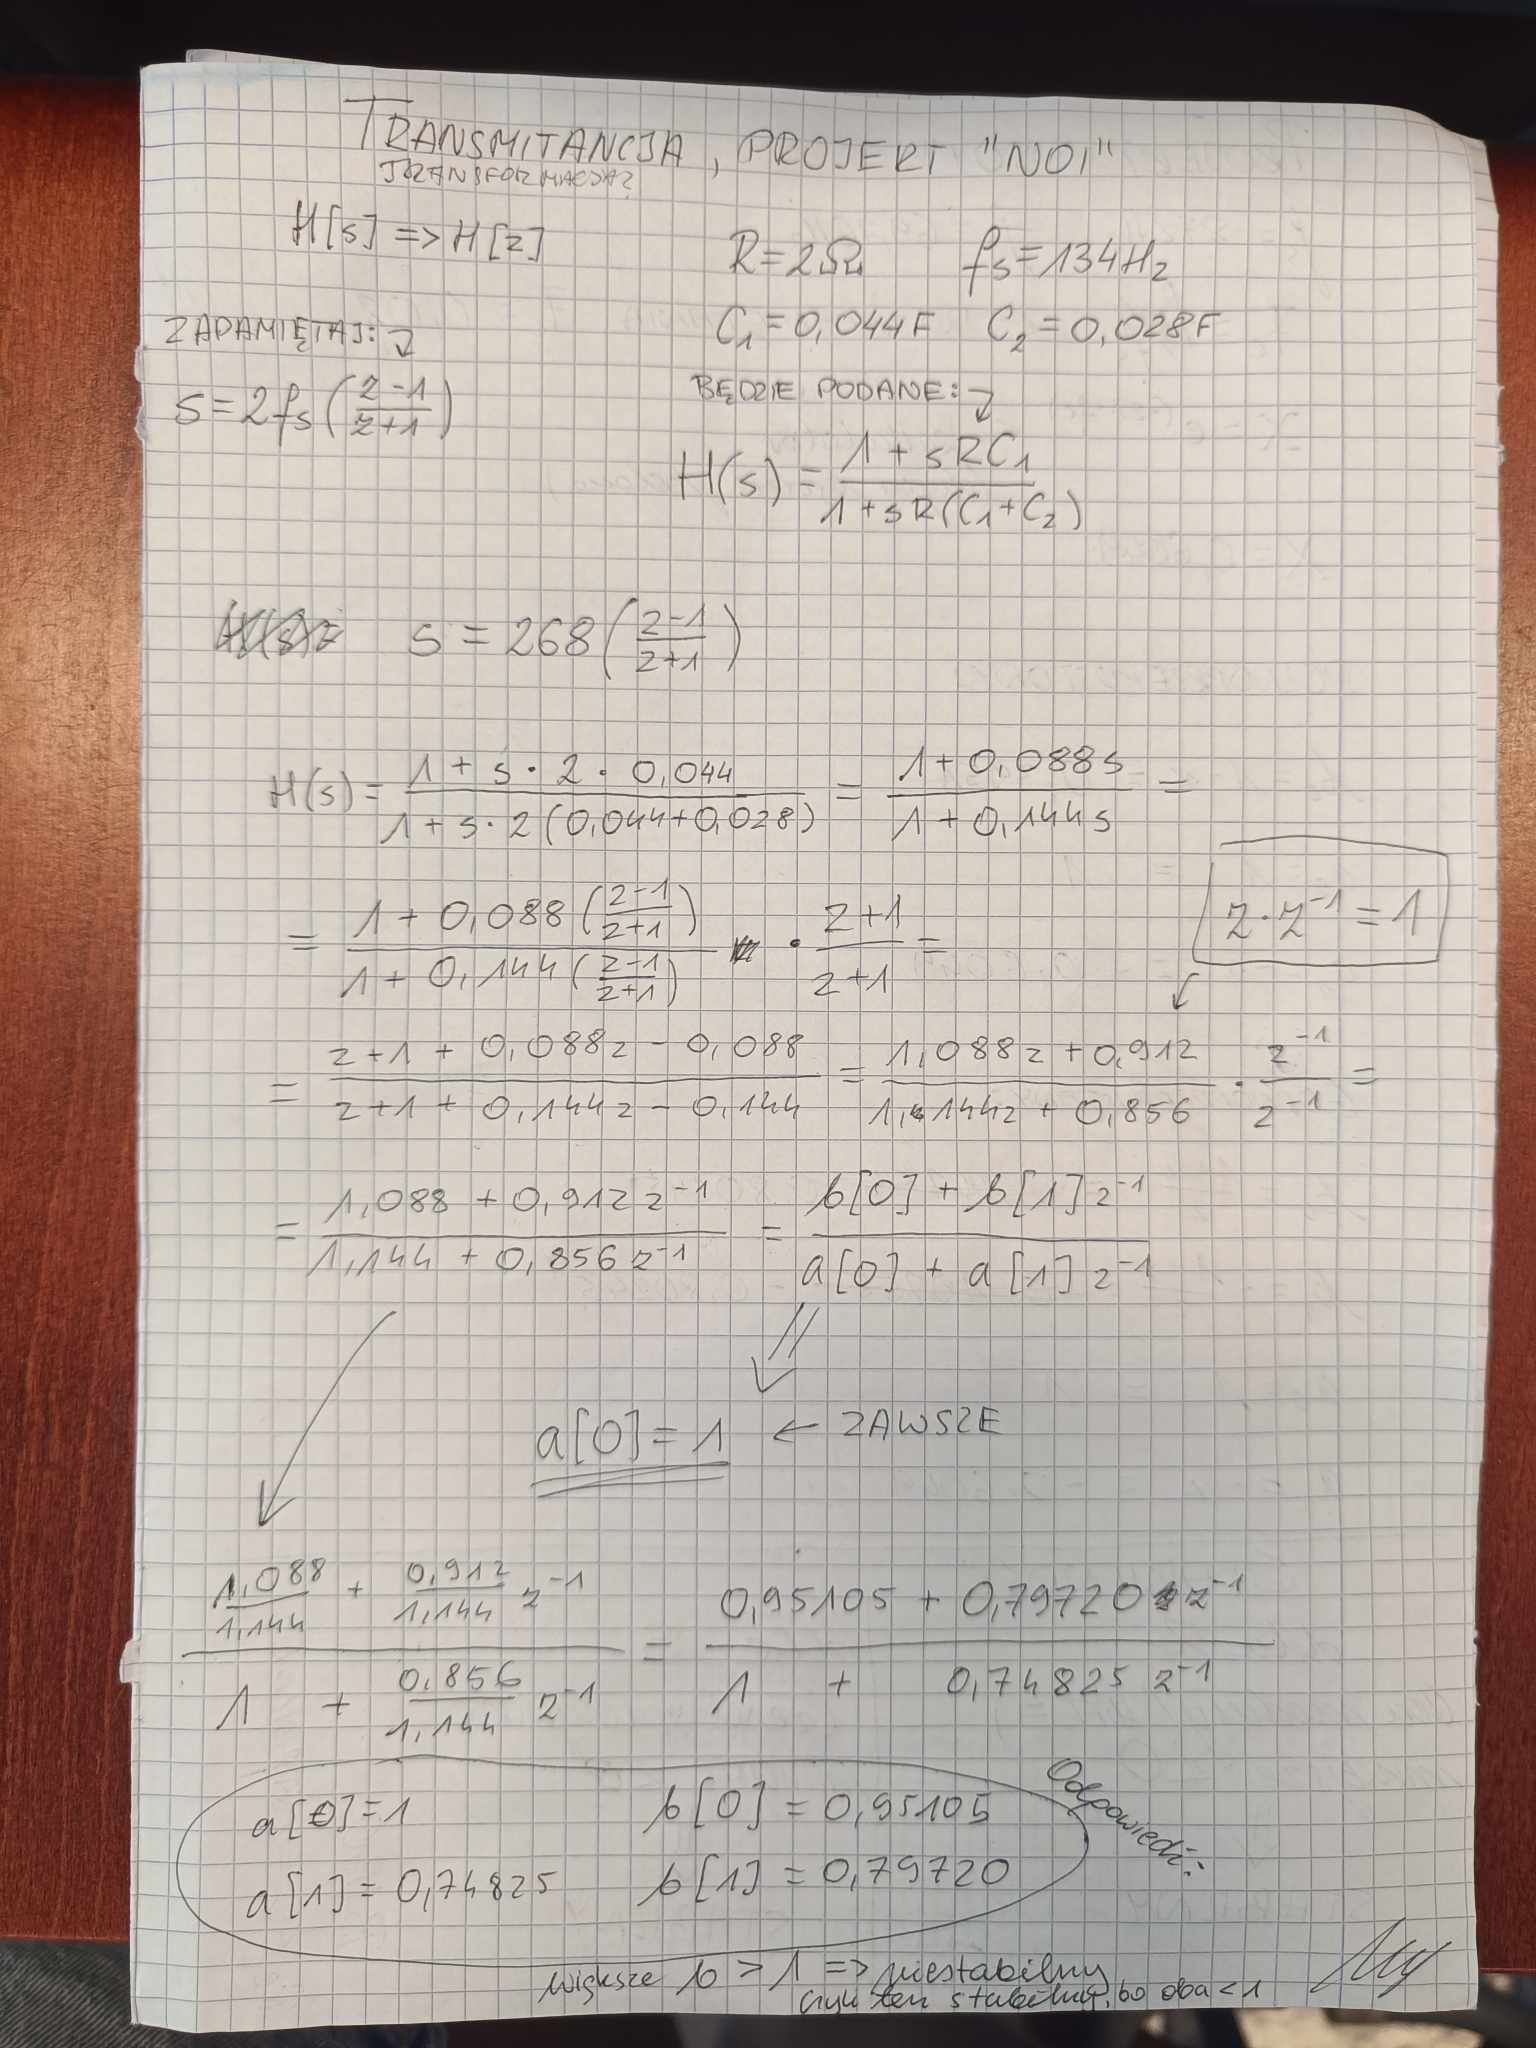 TRANSMITANCJA, PROJEKT "NOI"
TRANSFORMACJA?
H[s] => H[z]
R = 2Ω fs = 134Hz
C₁ = 0,044F C₂ = 0,028F
ZAPAMIĘTAJ: ↴
s = 2fs((z-1)/(z+1))
BĘDZIE PODANE: ↴
H(s) = (1 + sRC₁)/(1 + sR(C₁+C₂))
s = 268((z-1)/(z+1))
H(s) = (1 + s · 2 · 0,044)/(1 + s · 2(0,044+0,028)) = (1 + 0,088s)/(1 + 0,144s) =
z · z⁻¹ = 1
= (1 + 0,088((z-1)/(z+1)))/(1 + 0,144((z-1)/(z+1))) · (z+1)/(z+1) =
= (z+1 + 0,088z - 0,088)/(z+1 + 0,144z - 0,144) = (1,088z + 0,912)/(1,144z + 0,856) · z⁻¹/z⁻¹ =
= (1,088 + 0,912z⁻¹)/(1,144 + 0,856z⁻¹) = (b[0] + b[1]z⁻¹)/(a[0] + a[1]z⁻¹)
a[0] = 1 ← ZAWSZE
(1,088/1,144 + 0,912/1,144 z⁻¹)/(1 + 0,856/1,144 z⁻¹) = (0,95105 + 0,79720z⁻¹)/(1 + 0,74825z⁻¹)
Odpowiedź:
a[0] = 1 b[0] = 0,95105
a[1] = 0,74825 b[1] = 0,79720
większe b > 1 => niestabilny
czyli ten stabilny, bo oba < 1